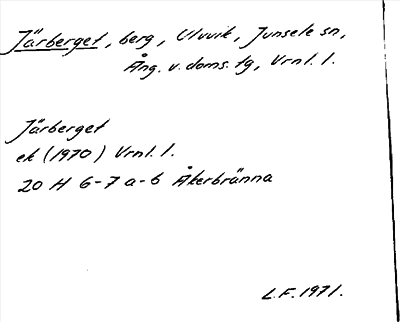 Järberget, berg, Uluvik, Junsele sn,
Ång. v. doms. tg, Vrnl. l.
Järberget
ek (1970) Vrnl. l.
20 H 6-7 a-b Åkerbränna
L.F. 1971.